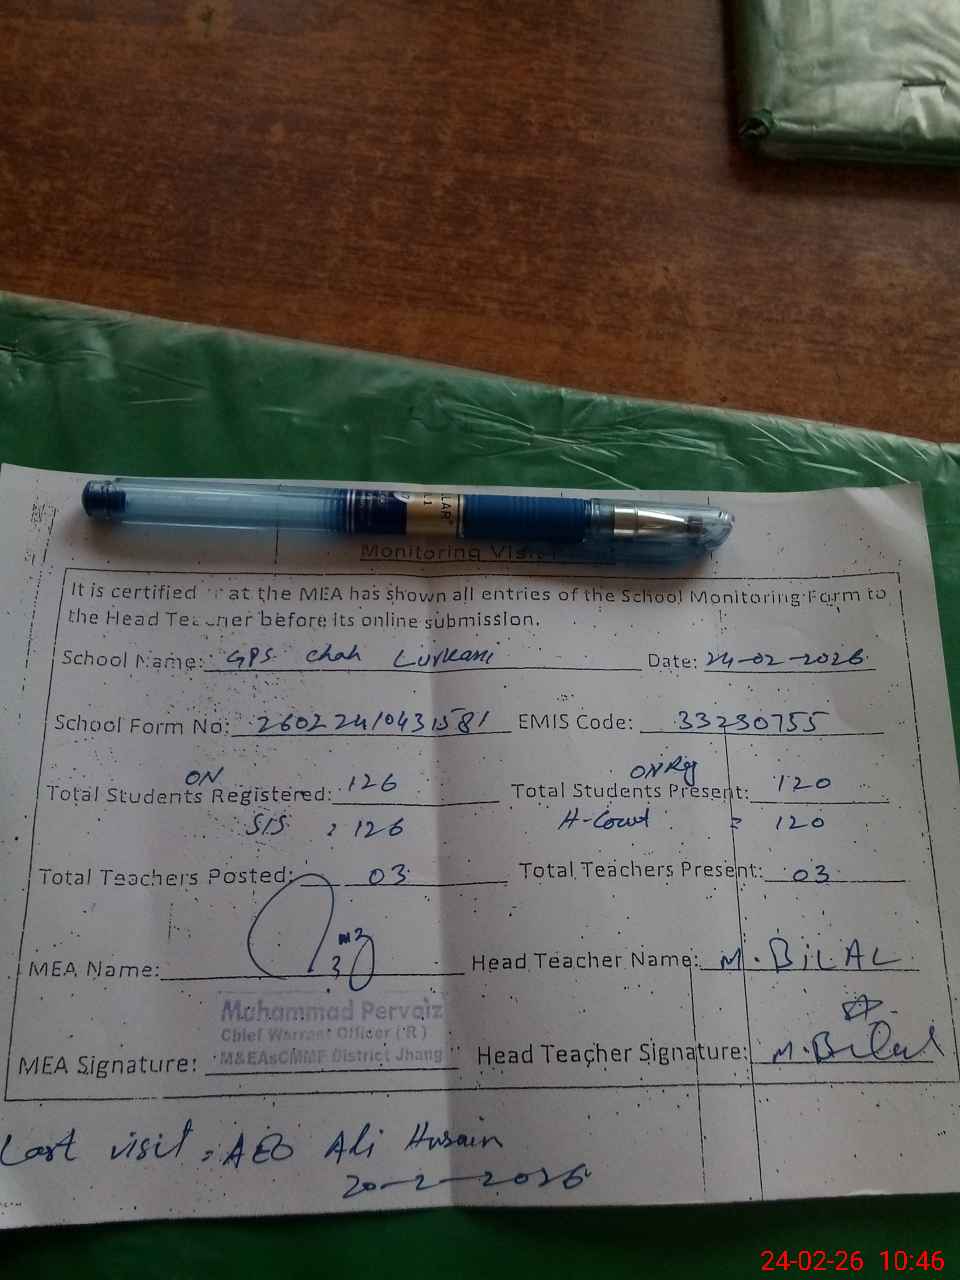 Monitoring Visit
It is certified at the MEA has shown all entries of the School Monitoring Form to
the Head Teacher before its online submission.
School Name: GPS Chah Lurkani Date: 24-02-2026
School Form No: 26022410431581 EMIS Code: 33230755
ON ON Rg
Total Students Registered: 126 Total Students Present: 120
SIS = 126 H-Count = 120
Total Teachers Posted: 03 Total Teachers Present: 03
MEA Name: Head Teacher Name: M. BiLAL
Muhammad Pervaiz
Chief Warrant Officer (R)
M&EAsCMMF District Jhang
MEA Signature: Head Teacher Signature: M. Bilal
Last visit = AEO Ali Husain
20-2-2026
24-02-26 10:46